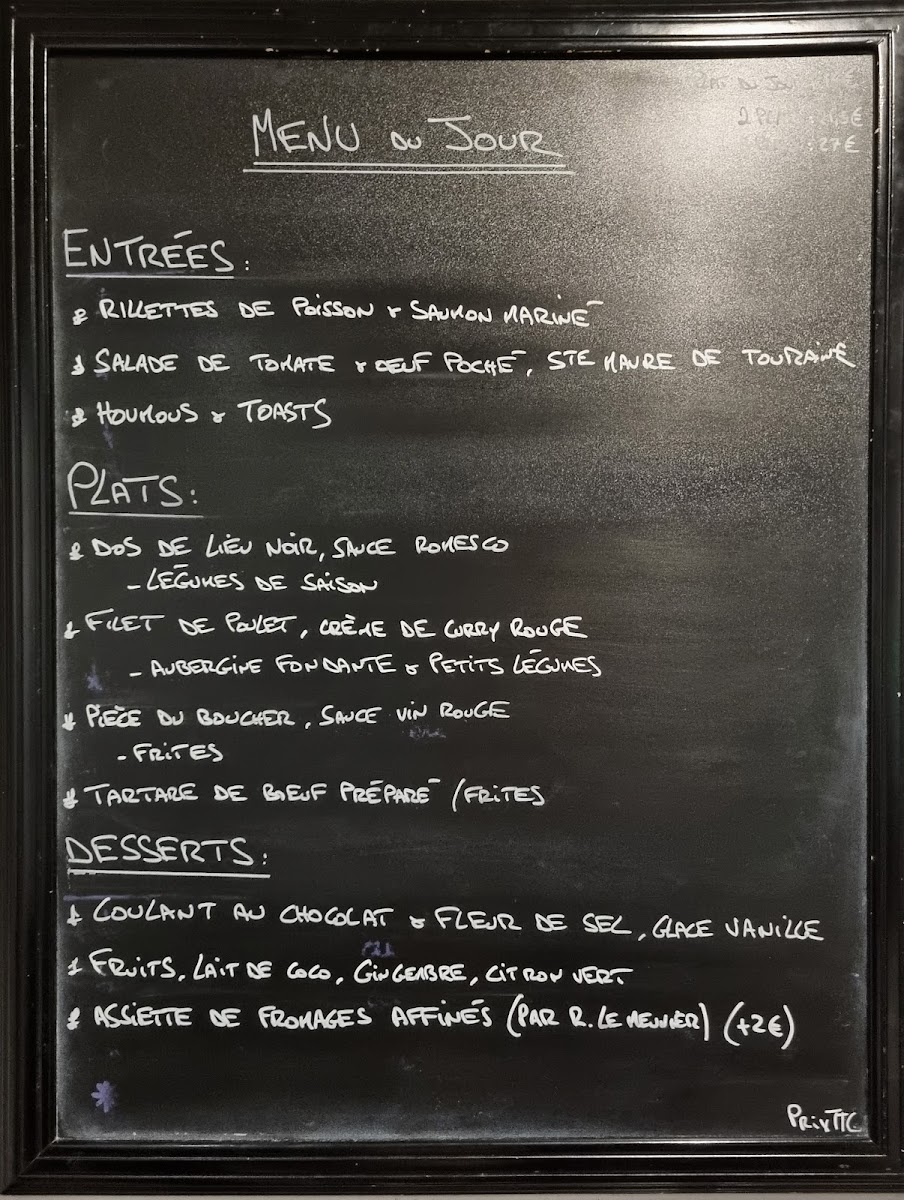 PLAT DU JOUR
2 PLATS
: 27€
MENU DU JOUR
ENTRÉES :
* RILLETTES DE POISSON & SAUMON MARINÉ
* SALADE DE TOMATE & OEUF POCHÉ, STE MAURE DE TOURAINE
* HOUMOUS & TOASTS
PLATS :
* DOS DE LIEU NOIR, SAUCE ROMESCO
- LÉGUMES DE SAISON
* FILET DE POULET, CRÈME DE CURRY ROUGE
- AUBERGINE FONDANTE & PETITS LÉGUMES
* PIÈCE DU BOUCHER, SAUCE VIN ROUGE
- FRITES
* TARTARE DE BOEUF PRÉPARÉ / FRITES
DESSERTS :
* COULANT AU CHOCOLAT & FLEUR DE SEL, GLACE VANILLE
* FRUITS, LAIT DE COCO, GINGEMBRE, CITRON VERT
* ASSIETTE DE FROMAGES AFFINÉS (PAR R. LE MEUNIER) (+2€)
PRIX TTC